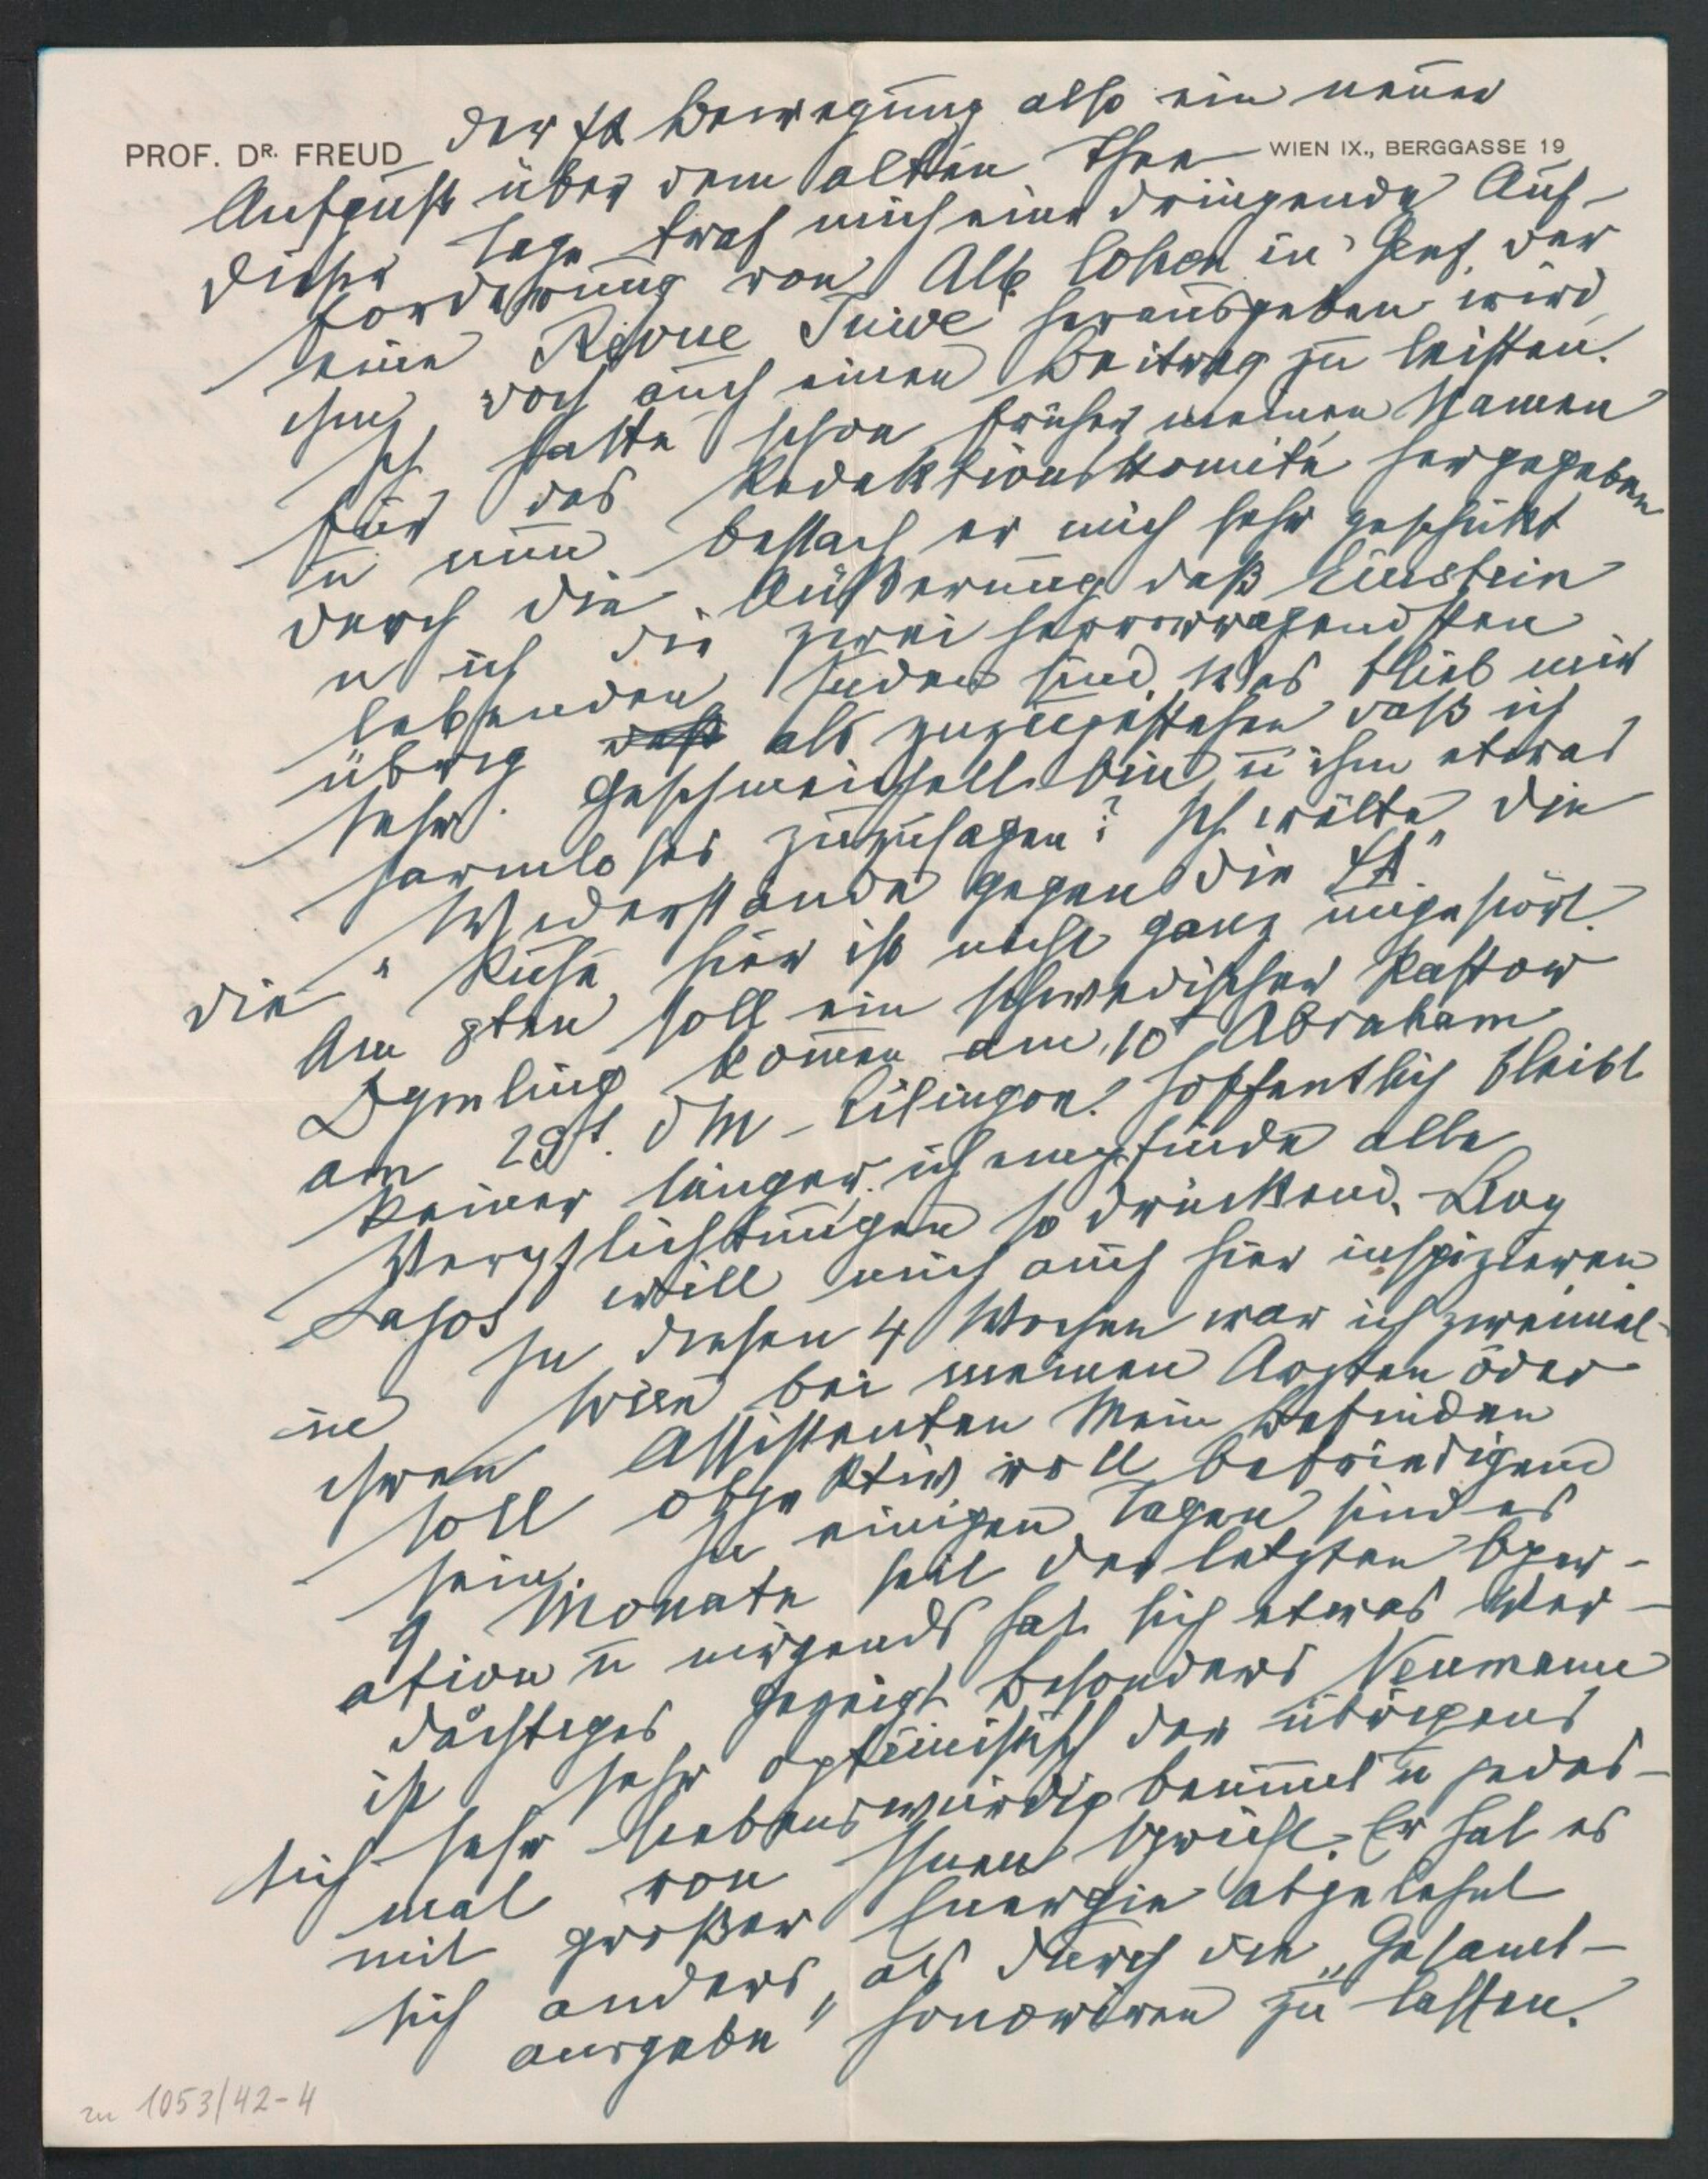 PROF. DR. FREUD
WIEN IX., BERGGASSE 19
der ψα Bewegung also ein neuer
Aufguß über dem alten Thee
Dieser Tage traf mich eine dringende Auf-
forderung von Alb Cohen in Genf, der
eine Revue Juive herausgeben wird,
ihm doch auch einen Beitrag zu leisten.
Ich hatte schon früher meinen Namen
für das Redaktionskomité hergegeben
u nun bestach er mich sehr geschickt
durch die Äußerung daß Einstein
u ich die zwei hervorragendsten
lebenden Juden sind. Was blieb mir
übrig daß als zuzugestehen daß ich
sehr geschmeichelt bin u ihm etwas
harmloses zuzusagen? Ich wälte die
"Widerstände gegen die ψα"
die Ruhe hier ist nicht ganz ungestört.
Am 8ten soll ein schwedischer Pastor
kommen am 10t Abraham
am 29t. DM – Eitingon. Hoffentlich bleibt
keiner länger, ich empfinde alle
Verpflichtungen so drückend. Levy
Lajos will mich auch hier inspizieren
In diesen 4 Wochen war ich zweimal
in Wien bei meinen Ärzten oder
ihren Assistenten Mein Befinden
soll objektiv voll befriedigend
sein. In einigen Tagen sind es
9 Monate seit der letzten Oper-
ation u nirgends hat sich etwas Ver-
dächtiges gezeigt Besonders Neumann
ist sehr optimistisch der übrigens
sich sehr liebenswürdig benimmt u jedes-
mal von Ihnen spricht. Er hat es
mit großer Energie abgelehnt
sich anders, als durch die „Gesamt-
ausgabe" honoriren zu lassen.
zu 1053/42-4